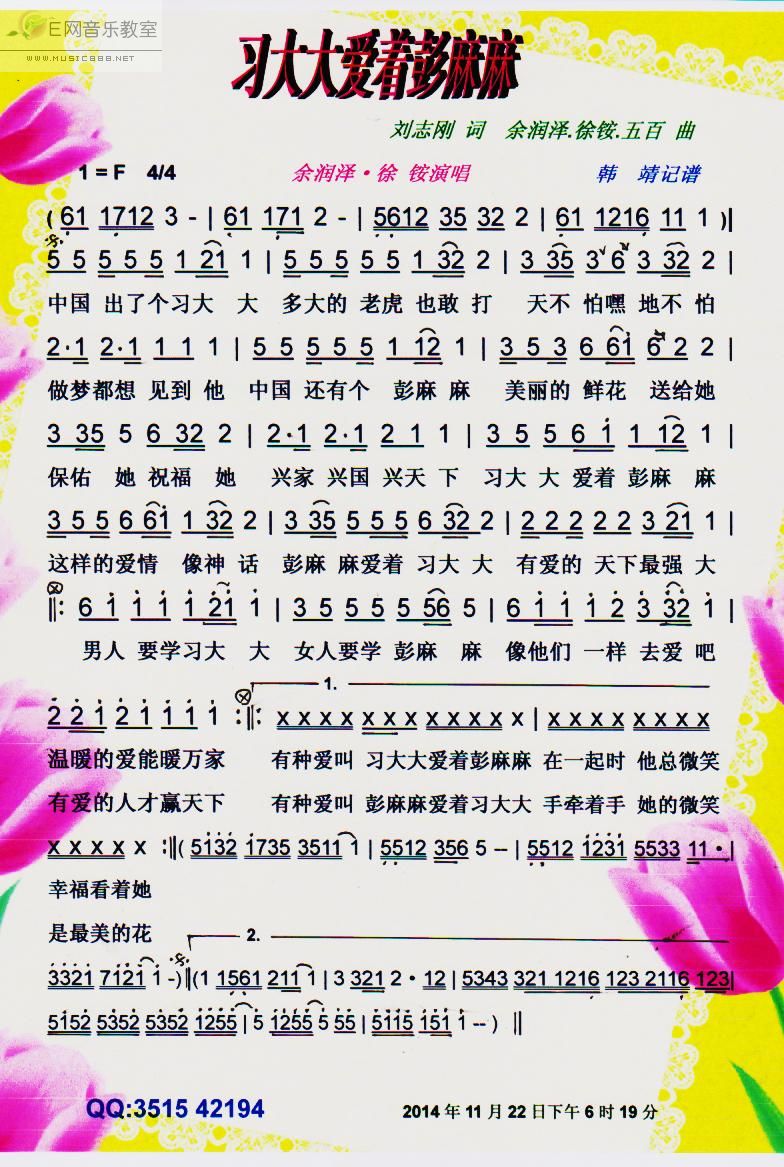 E网音乐教室
WWW.MUSIC888.NET
习大大爱着彭麻麻
刘志刚 词 余润泽.徐铵.五百 曲
1=F 4/4 余润泽·徐 铵演唱 韩 靖记谱
(61 1712 3 - | 61 171 2 - | 5612 35 32 2 | 61 1216 11 1 )|
5 5 5 5 5 1 21 1 | 5 5 5 5 5 1 32 2 | 3 35 3 6 3 32 2 |
中国 出了个习大 大 多大的 老虎 也敢 打 天不 怕嘿 地不 怕
2·1 2·1 1 1 1 | 5 5 5 5 5 1 12 1 | 3 5 3 6 61 6 2 2 |
做梦都想 见到 他 中国 还有个 彭麻 麻 美丽的 鲜花 送给她
3 35 5 6 32 2 | 2·1 2·1 2 1 1 | 3 5 5 6 1 1 12 1 |
保佑 她 祝福 她 兴家 兴国 兴天 下 习大 大 爱着 彭麻 麻
3 5 5 6 61 1 32 2 | 3 35 5 5 5 6 32 2 | 2 2 2 2 2 3 21 1 |
这样的爱情 像神 话 彭麻 麻爱着 习大 大 有爱的 天下最强 大
‖: 6 1 1 1 1 21 1 | 3 5 5 5 5 56 5 | 6 1 1 1 2 3 32 1 |
男人 要学习大 大 女人要学 彭麻 麻 像他们 一样 去爱 吧
1.
2 2 1 2 1 1 1 1 :‖: X X X X X X X X X X X X | X X X X X X X X
温暖的爱能暖万家 有种爱叫 习大大爱着彭麻麻 在一起时 他总微笑
有爱的人才赢天下 有种爱叫 彭麻麻爱着习大大 手牵着手 她的微笑
X X X X X :‖( 5132 1735 3511 1 | 5512 356 5 -- | 5512 1231 5533 11 · |
幸福看着她
是最美的花
2.
3321 7121 1 -)‖(1 1561 211 1 | 3 321 2 · 12 | 5343 321 1216 123 2116 123|
5152 5352 5352 1255 | 5 1255 5 55 | 5115 151 1 -- ) ‖
QQ:3515 42194
2014 年 11 月 22 日下午 6 时 19 分